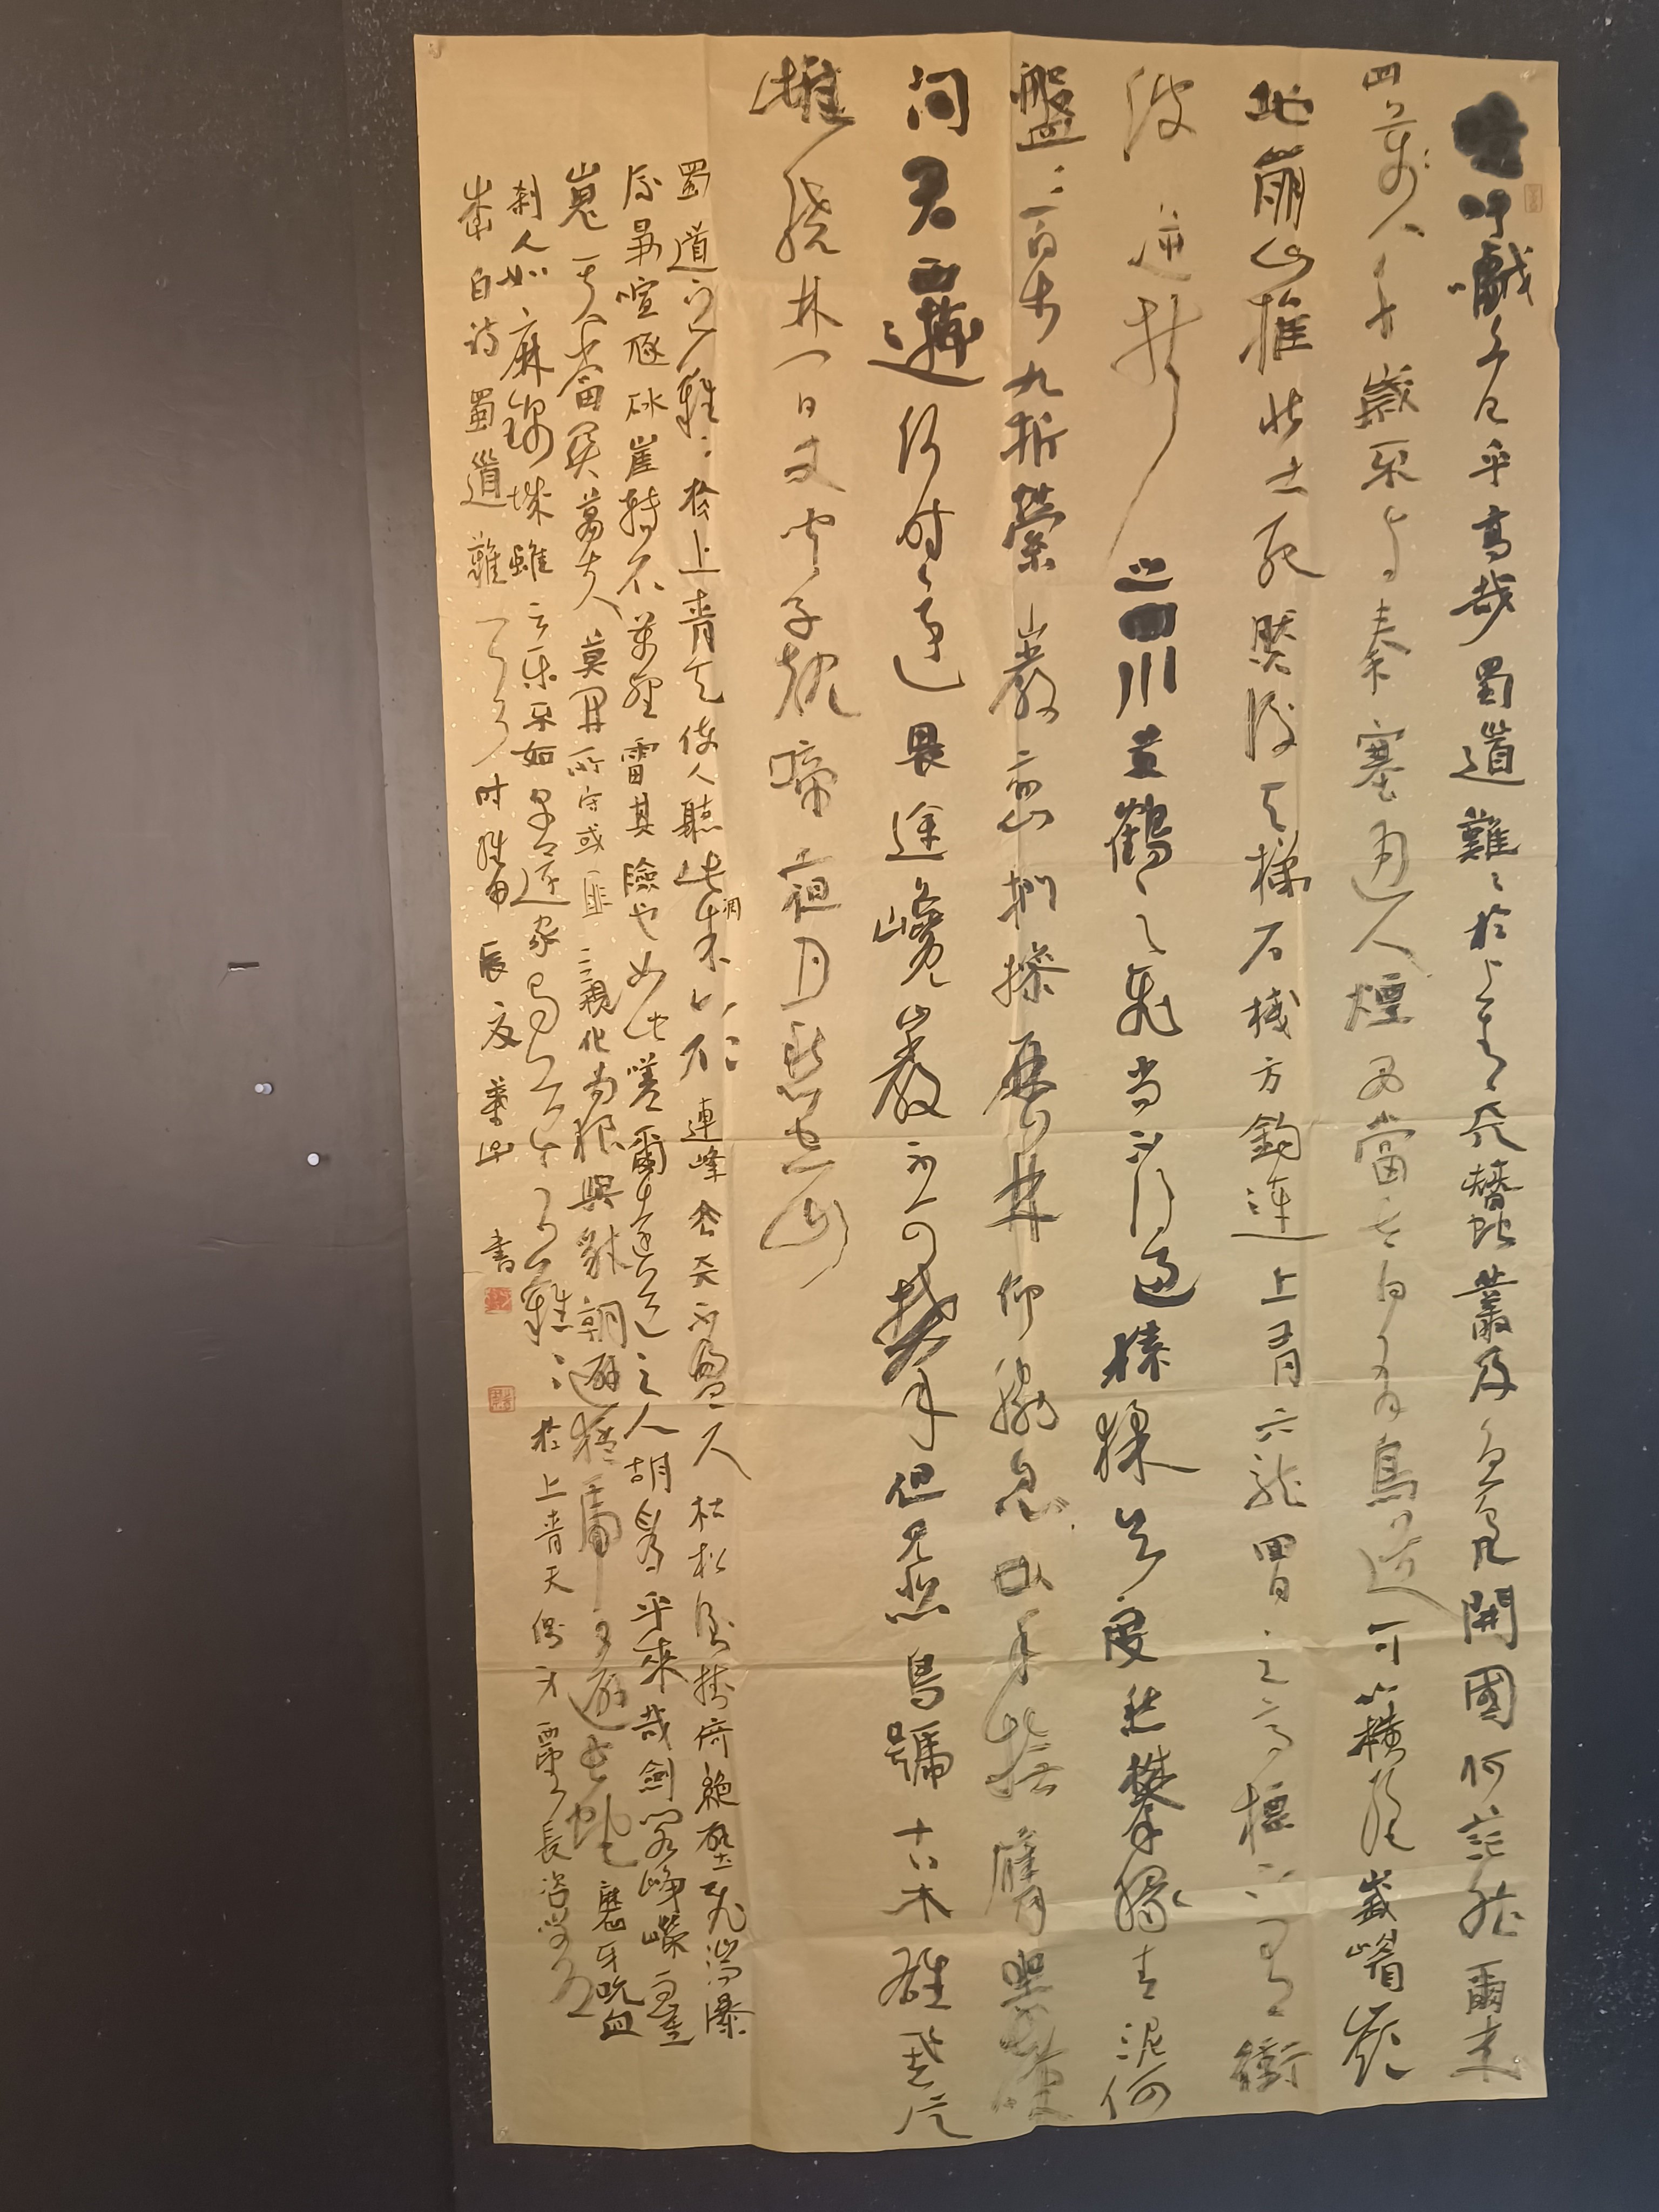 噫吁嚱危乎高哉蜀道難〻於上青天蠶叢及魚鳧開國何茫然爾來
四萬八千歲不与秦塞通人煙西當太白有鳥道可以橫絕峨嵋巔
地崩山摧壯士死然後天梯石棧方鉤連上有六龍回日之高標下有衝
波逆折之回川黃鶴之飛尚不得過猿猱欲度愁攀緣青泥何
盤〻百步九折縈巖巒捫參歷井仰脅息以手撫膺坐長嘆
問君西遊何時還畏途巉巖不可攀但見悲鳥號古木雄飛從
雌繞林間又聞子規啼夜月愁空山
蜀道之難〻於上青天使人聽此凋朱顏連峰去天不盈尺枯松倒掛倚絕壁飛湍瀑
流爭喧豗砯崖轉石萬壑雷其險也如此嗟爾遠道之人胡為乎來哉劍閣崢嶸而崔
嵬一夫當關萬夫莫開所守或匪親化為狼與豺朝避猛虎夕避長蛇磨牙吮血
剎人如麻錦城雖云樂不如早還家蜀道之難〻於上青天側身西望長咨嗟
李白詩蜀道難 時 辰 夏 書